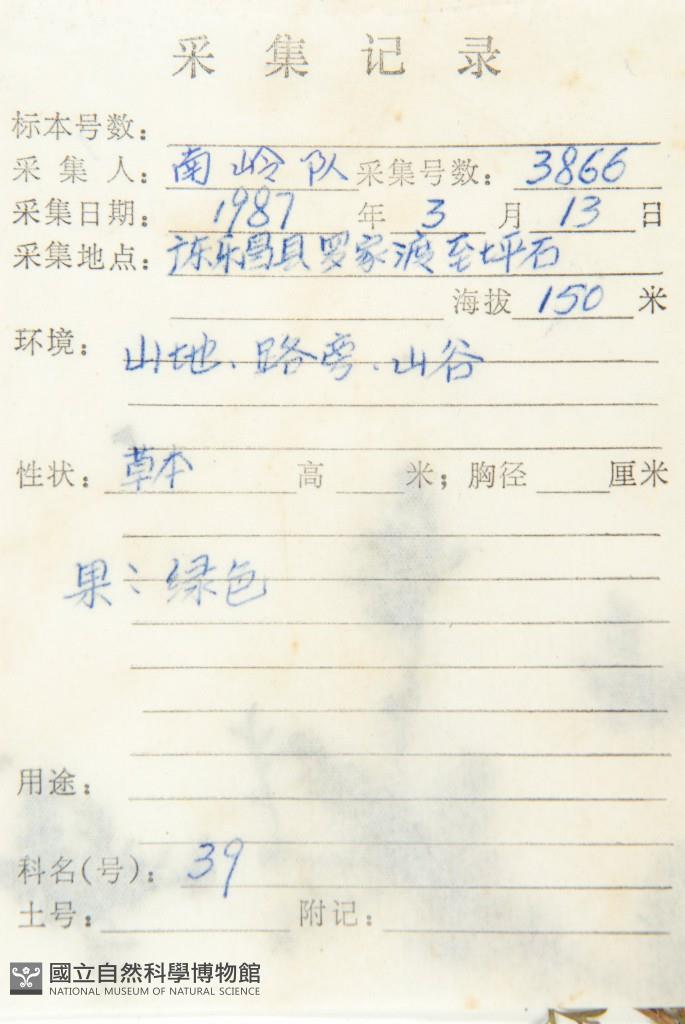 采集记录
标本号数：
采集人：南岭队 采集号数：3866
采集日期：1987 年 3 月 13 日
采集地点：广东乐昌县罗家渡至坪石
海拔 150 米
环境：山地、路旁、山谷
性状：草本 高 米；胸径 厘米
果：绿色
用途：
科名(号)：39
土号： 附记：
國立自然科學博物館
NATIONAL MUSEUM OF NATURAL SCIENCE